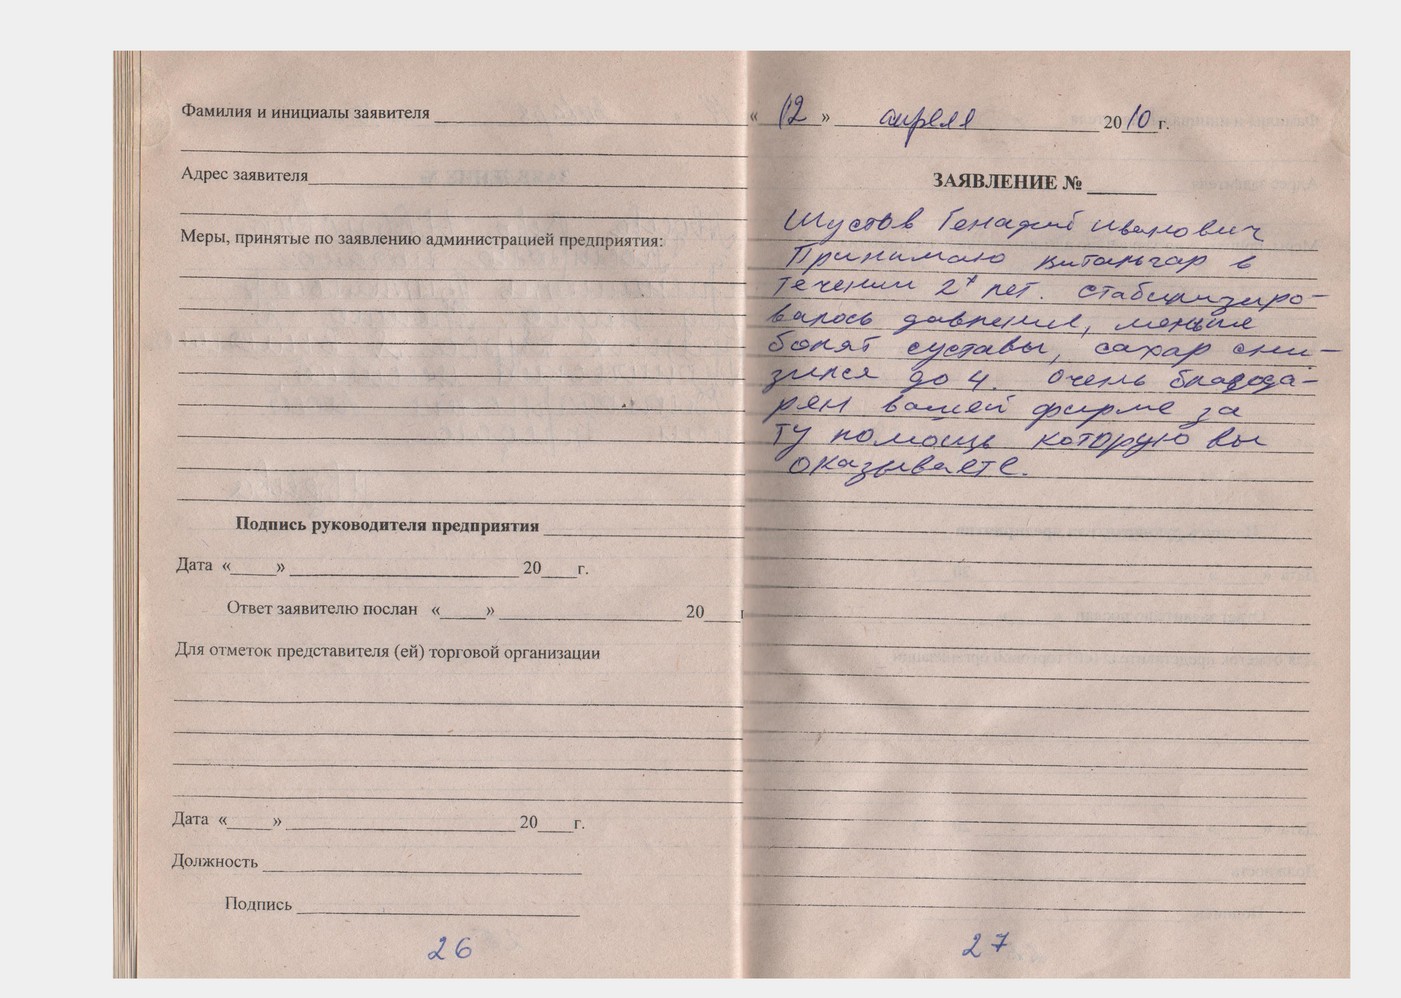 Фамилия и инициалы заявителя
Адрес заявителя
Меры, принятые по заявлению администрацией предприятия:
Подпись руководителя предприятия
Дата « » 20 г.
Ответ заявителю послан « » 20 г
Для отметок представителя (ей) торговой организации
Дата « » 20 г.
Должность
Подпись
26
« 12 » апреля 2010 г.
ЗАЯВЛЕНИЕ №
Шустов Генадий Иванович
Принимаю витальгар в
течении 2х лет. стабилизиро-
валось давление, меньше
болят суставы, сахар сни-
зился до 4. Очень благода-
рен вашей фирме за
ту помощь которую вы
оказываете.
27